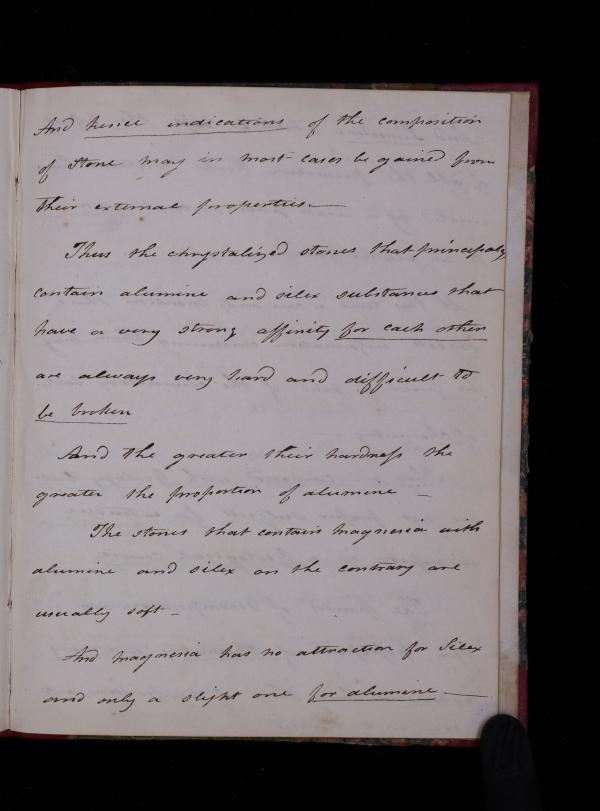 And hence indications of the composition
of Stone may in most cases be gained from
their external properties —
Thus the chrystalized stones that principaly
contain alumine and silex substances that
have a very strong affinity for each other
are always very hard and difficult to
be broken
And the greater their hardness the
greater the proportion of alumine —
The stones that contain magnesia with
alumine and silex on the contrary are
usually soft —
And magnesia has no attraction for Silex
and only a slight one for alumine —